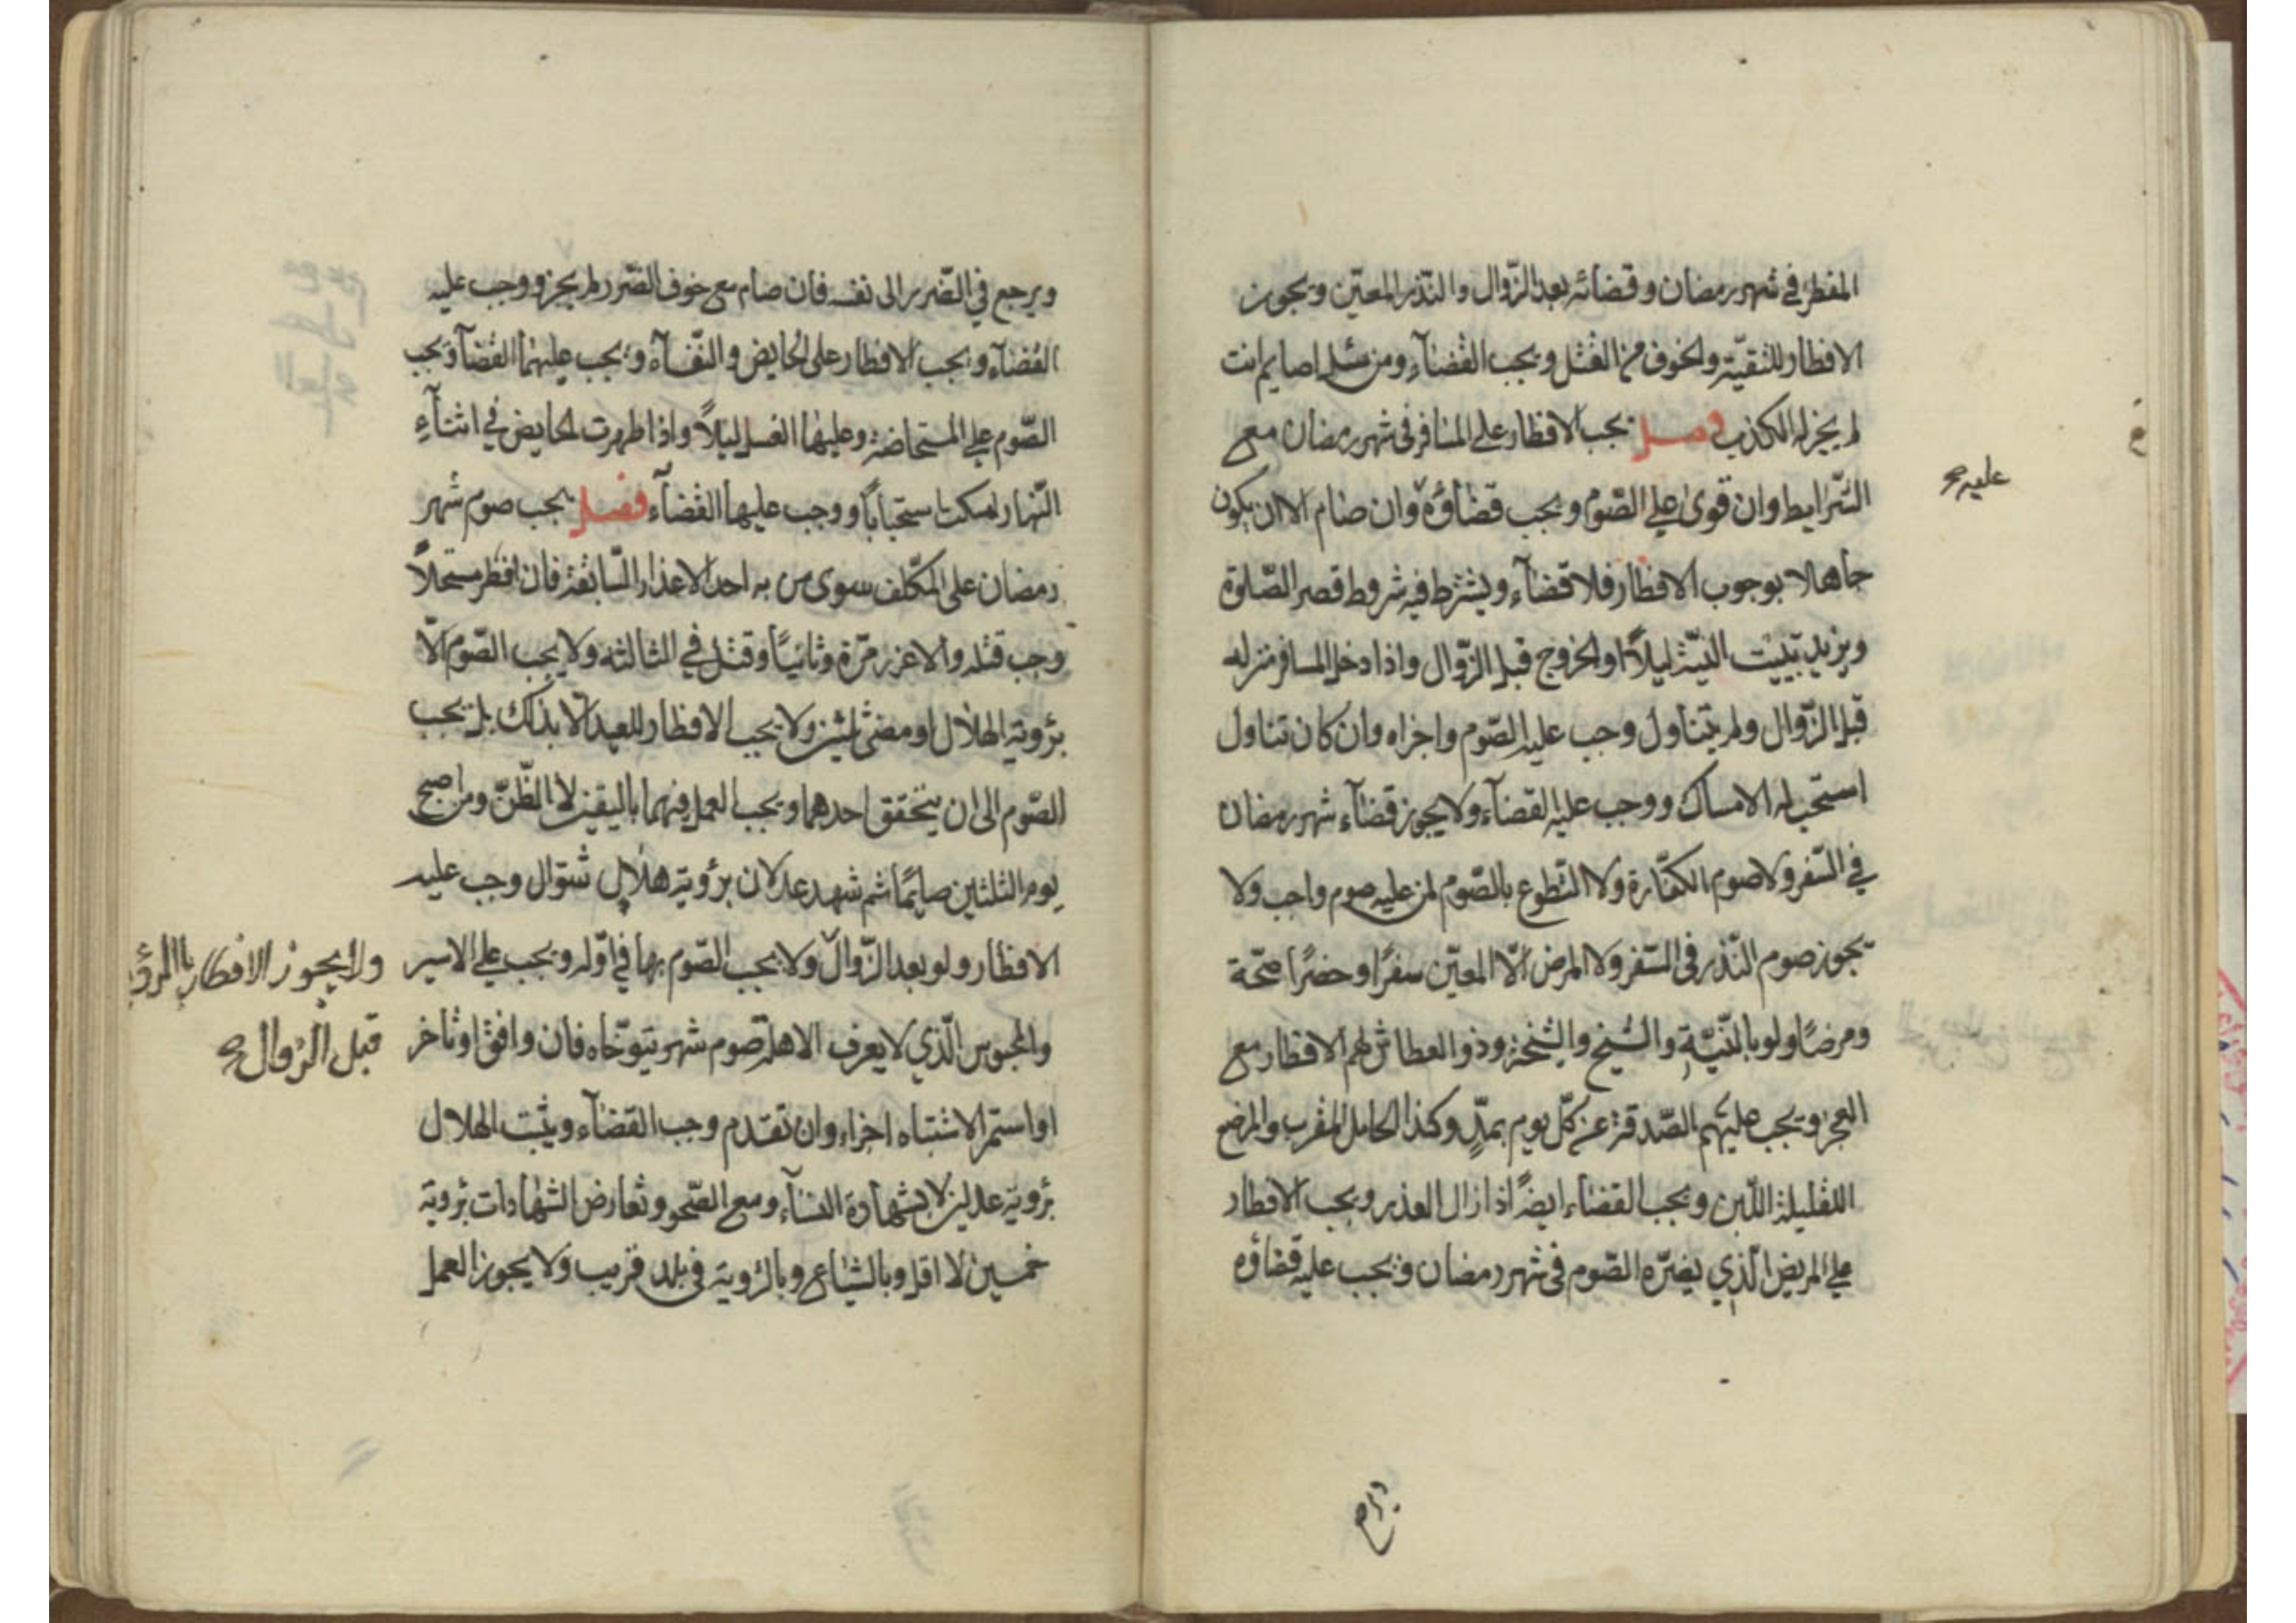 المفطر في شهر رمضان وقضائه بعد الزّوال والنّذر المعيّن ويجوز
الافطار للتقيّة والخوف من القتل ويجب القضآء ومن سئل اصايم انت
لم يجز له الكذب فصل يجب الافطار على المسافر في شهر رمضان مع
الشّرايط وان قوى على الصّوم ويجب قضاؤه وان صام الا ان يكون
جاهلا بوجوب الافطار فلا قضآء ويشترط فيه شروط قصر الصّلوة
ويزيد تبييت النيّة ليلاً او الخروج قبل الزّوال واذا دخل المسافر منزله
قبل الزّوال ولم يتناول وجب عليه الصّوم واجزاه وان كان تناول
استحب له الامساك ووجب عليه القضآء ولا يجوز قضآء شهر رمضان
في السّفر ولا صوم الكفّارة ولا التّطوع بالصّوم لمن عليه صوم واجب ولا
يجوز صوم النّذر في السّفر ولا المرض الّا المعيّن سفرًا وحضرًا صحّة
ومرضًا ولو بالنّيّة والشيخ والشيخة وذو العطاش لهم الافطار مع
العجز ويجب عليهم الصّدقة عن كلّ يوم بمدّ وكذا الحامل المقرب والمرضع
القليلة اللّبن ويجب القضاء ايضًا اذا زال العذر ويجب الافطار
على المريض الّذي يضرّه الصّوم في شهر رمضان ويجب عليه قضاؤه
عليه
ويرجع في الضّرر الى نفسه فان صام مع خوف الضّرر لم يجز ووجب عليه
القضآء ويجب الافطار على الحايض والنّفسآء ويجب عليهما القضآ ويجب
الصّوم على المستحاضة وعليها الغسل ليلاً واذا طهرت الحايض في اثنآء
النّهار امسكت استحبابًا ووجب عليها القضآء فصل يجب صوم شهر
رمضان على المكلّف سوى من به احد الاعذار السّابقة فان افطر مستحلاً
وجب قتله والا عزر مرّة وثانيًا وقتل في الثالثه ولا يجب الصّوم الّا
برؤية الهلال او مضى ثلثين ولا يجب الافطار للعيد الا بذلك بل يجب
الصّوم الى ان يتحقق احدهما ويجب العمل فيهما باليقين لا الظّنّ ومن اصبح
يوم الثلثين صايمًا ثم شهد عدلان برؤية هلال شوّال وجب عليه
الافطار ولو بعد الزّوال ولا يجب الصّوم بها في اوّله ويجب على الاسير
والمحبوس الّذي لا يعرف الاهلة صوم شهر يتوخّاه فان وافق او تاخر
او استمر الاشتباه اجزاء وان تقدم وجب القضآء ويثبت الهلال
برؤية عدلين لا بشهادة النسآء ومع الصّحو وتعارض الشهادات برؤية
خمسين لا اقل وبالشياع وبالرؤية في بلد قريب ولا يجوز العمل
ولا يجوز الافطار بالرؤية
قبل الزوال